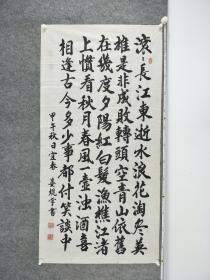 滚々長江東逝水浪花淘尽英
雄是非成敗轉頭空青山依舊
在幾度夕陽紅白髮漁樵江渚
上慣看秋月春風一壶浊酒喜
相逢古今多少事都付笑談中
甲午秋日宜春 姜